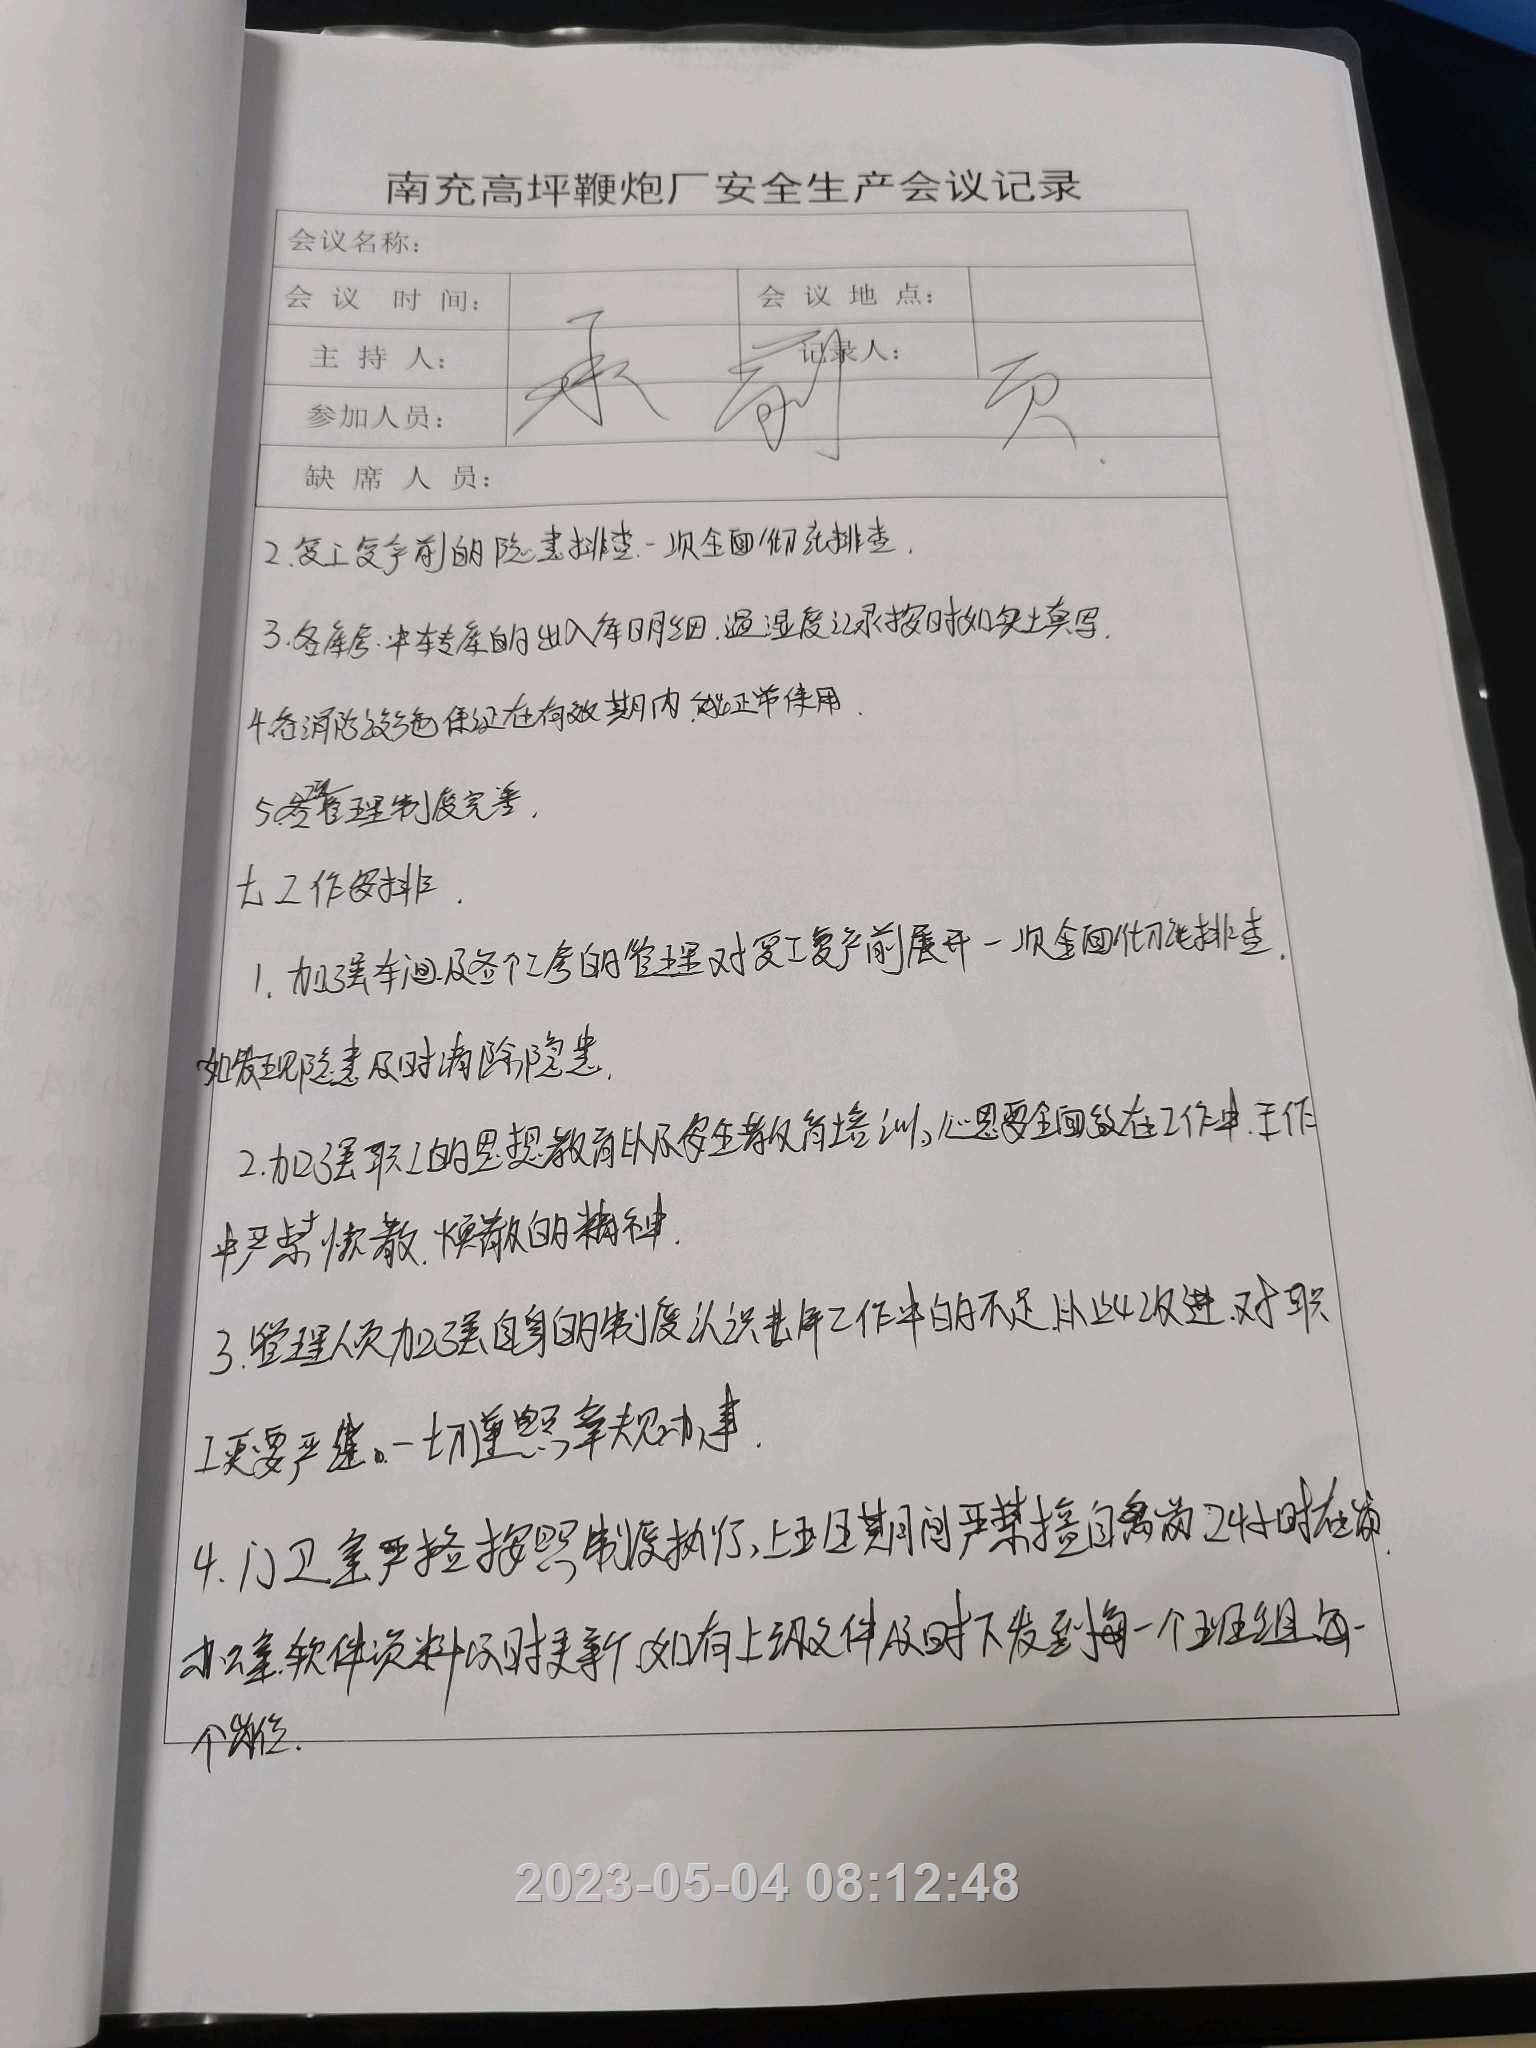 南充高坪鞭炮厂安全生产会议记录
会议名称：
会 议 时 间： 会 议 地 点：
主 持 人： 记录人：
承 前 页
参加人员：
缺 席 人 员：
2.复工复产前的隐患排查.一次全面彻底排查.
3.各库房.中转库的出入库明细.温湿度记录按时如实填写.
4.各消防设施保证在有效期内.能正常使用.
5.各管理制度完善.
七工作安排.
1.加强车间及各个工房的管理对复工复产前展开一次全面彻底排查.
如发现隐患及时消除隐患.
2.加强职工的思想教育以及安全教育培训,心思要全面放在工作中.工作
中严禁懒散.涣散的精神.
3.管理人员加强自身的制度认识 工作中的不足.加以改进.对职
工更要严谨。一切遵照章规办事.
4.门卫室严格按照制度执行,上班期间严禁擅自离岗24小时在岗.
办公室.软件资料及时更新.如有上级文件及时下发到每一个班组.每一
个岗位.
2023-05-04 08:12:48